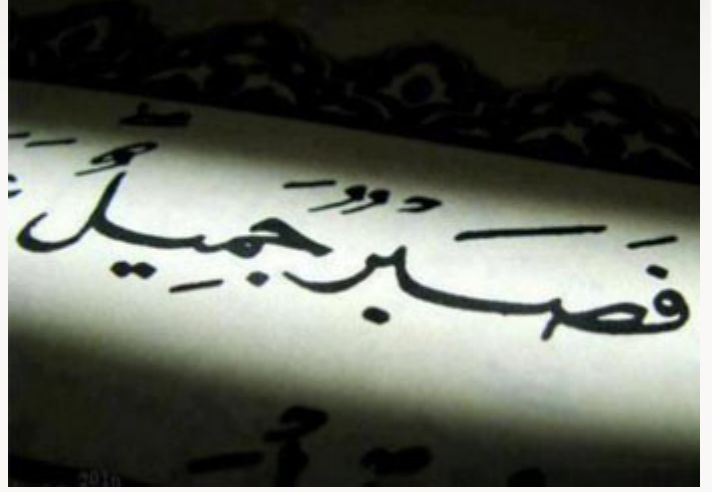 فَصَبْرٌ جَمِيلٌ ۖ
2016